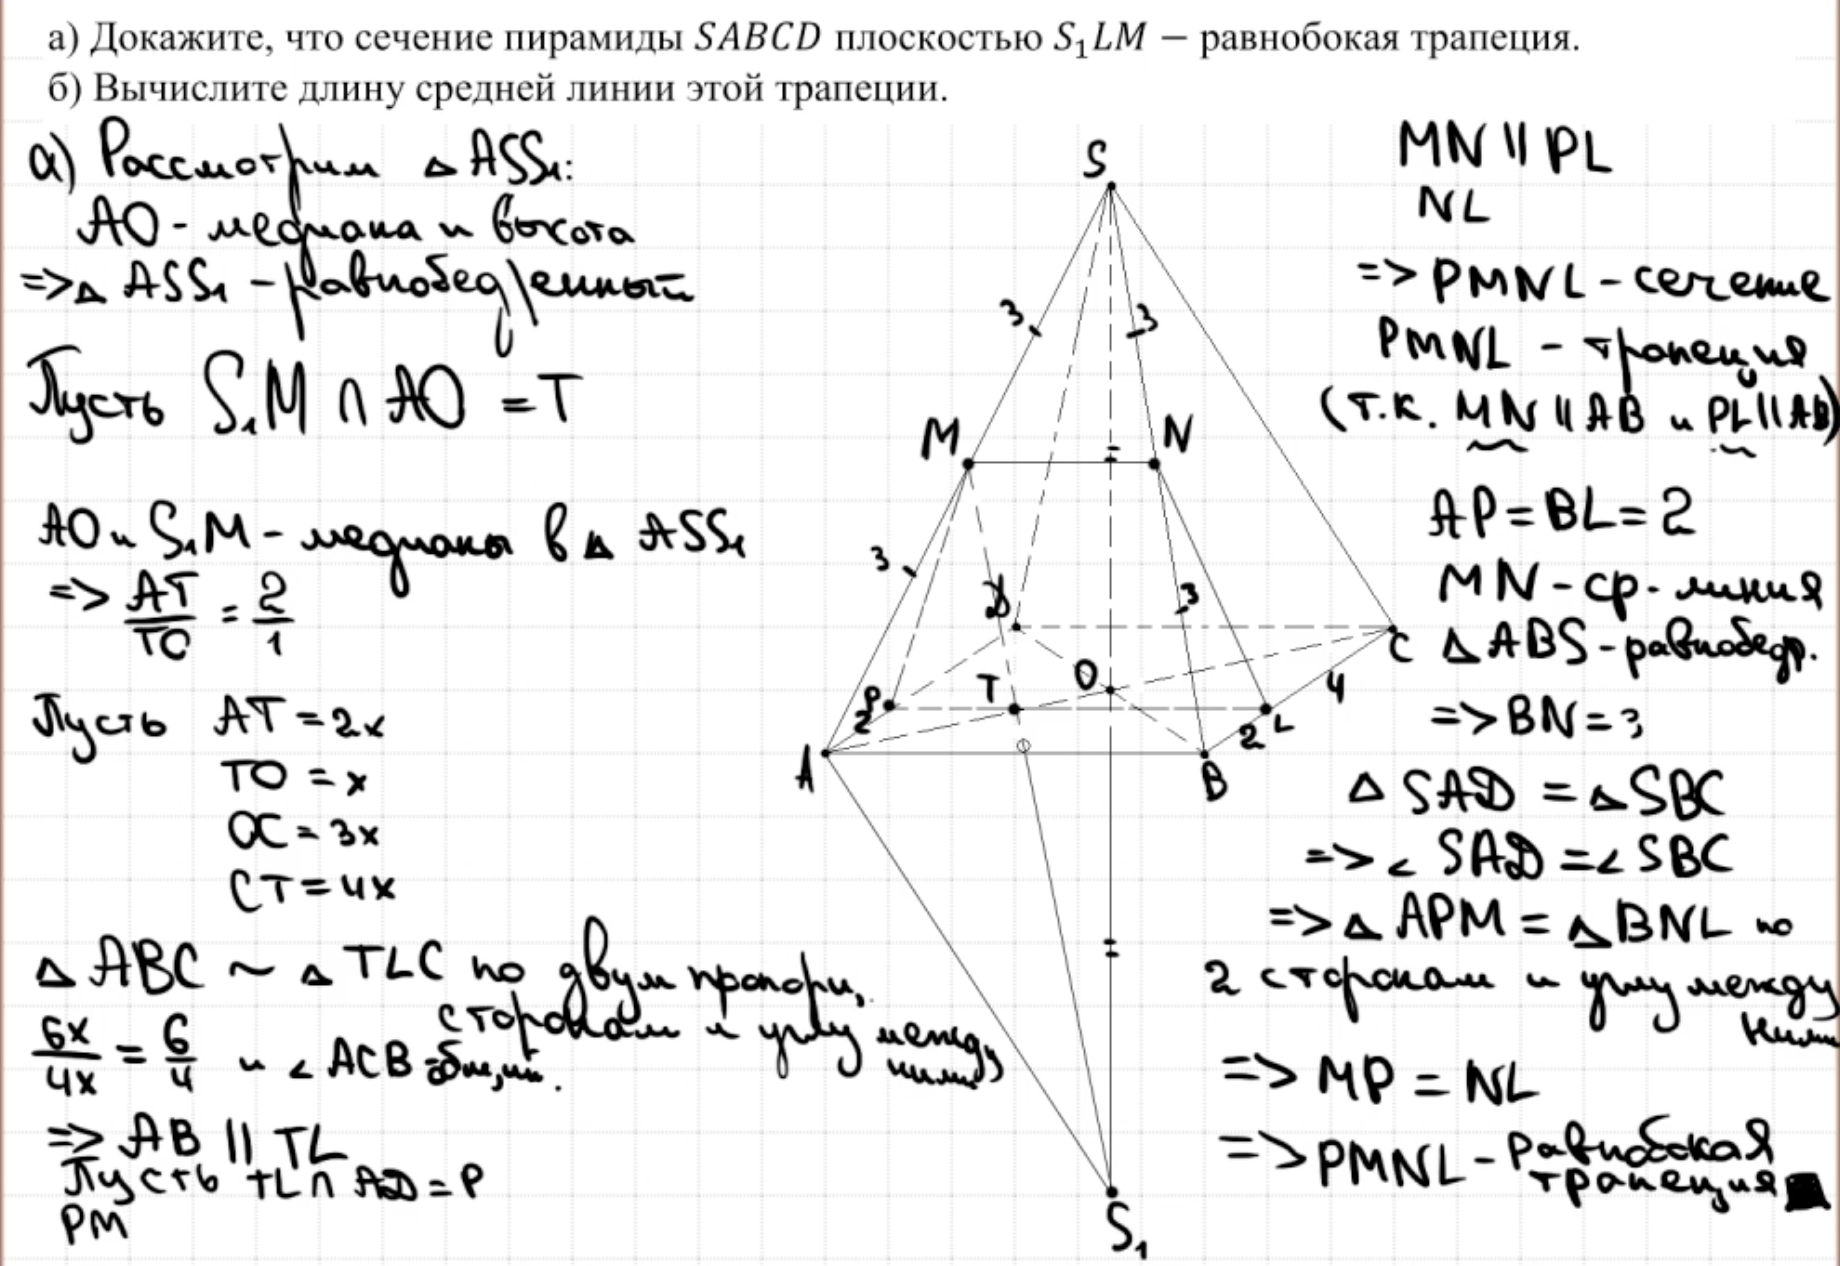 а) Докажите, что сечение пирамиды SABCD плоскостью S₁LM − равнобокая трапеция.
б) Вычислите длину средней линии этой трапеции.
а) Рассмотрим △ ASS₁:
AO - медиана и высота
=> △ ASS₁ - равнобедренный
Пусть S₁M ∩ AO = T
AO и S₁M - медианы в △ ASS₁
=> AT/TO = 2/1
Пусть AT = 2x
TO = x
OC = 3x
CT = 4x
△ ABC ~ △ TLC по двум пропорц.
сторонам и углу между
ними
6x/4x = 6/4 и ∠ ACB общий.
=> AB || TL
Пусть TL ∩ AD = P
PM
S
3
3
M
N
3
3
D
C
P
T
O
4
2
2
L
A
B
S₁
MN || PL
NL
=> PMNL - сечение
PMNL - трапеция
(т.к. MN || AB и PL || AB)
AP = BL = 2
MN - ср. линия
△ ABS - равнобедр.
=> BN = 3
△ SAD = △ SBC
=> ∠ SAD = ∠ SBC
=> △ APM = △ BNL по
2 сторонам и углу между
ними
=> MP = NL
=> PMNL - равнобокая
трапеция